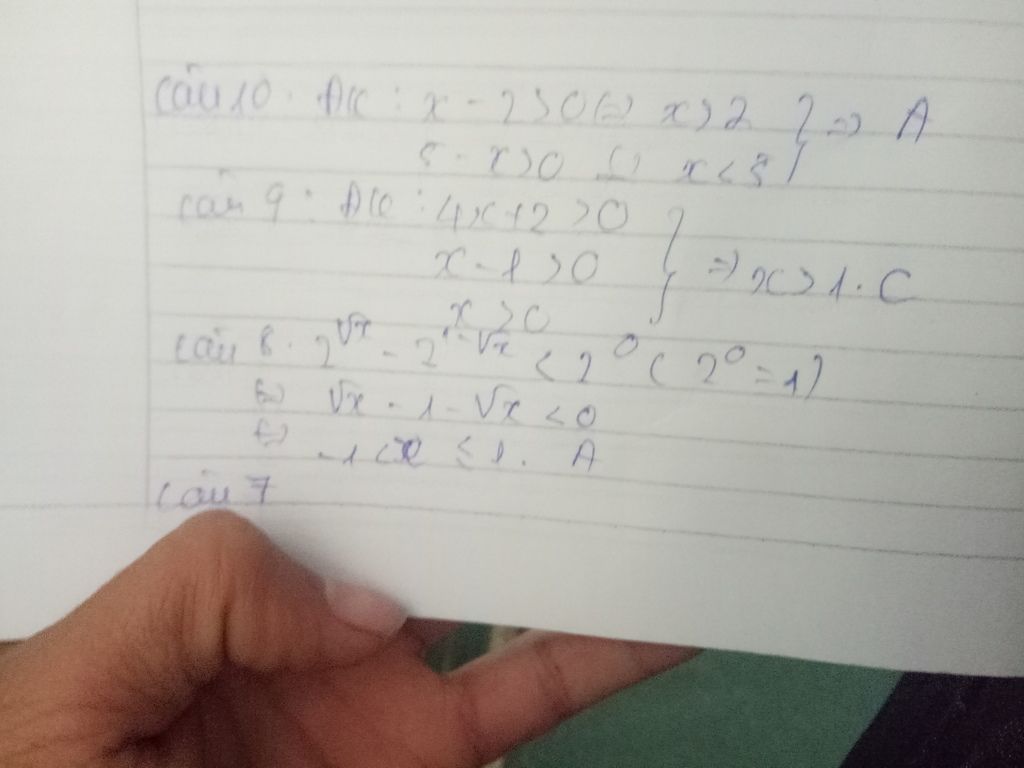 Câu 10. ĐK : x - 2 > 0 (=) x > 2 } => A
5 - x > 0 (=) x < 5
Câu 9 : ĐK : 4x + 2 > 0
x - 1 > 0 } => x > 1. C
x > 0
Câu 8. 2^√x - 2^1-√x < 2^0 ( 2^0 = 1)
(=) √x - 1 - √x < 0
(=) -1 < x ≤ 1. A
Câu 7